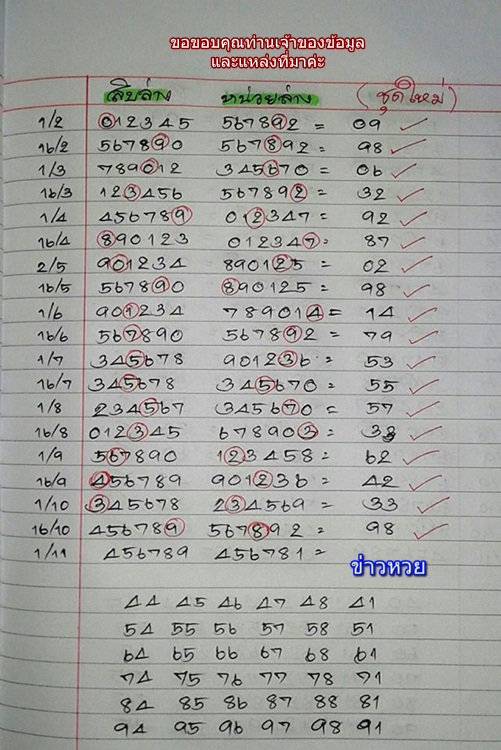 ขอขอบคุณท่านเจ้าของข้อมูล
และแหล่งที่มาค่ะ
สิบล่าง หน่วยล่าง (ชุดใหม่)
1/2 012345 567892 = 09 ✓
16/2 567890 567892 = 98 ✓
1/3 789012 345670 = 06 ✓
16/3 123456 567892 = 32 ✓
1/4 456789 012347 = 92 ✓
16/4 890123 012347 = 87 ✓
2/5 901234 890125 = 02 ✓
16/5 567890 890125 = 98 ✓
1/6 901234 789014 = 14 ✓
16/6 567890 567892 = 79 ✓
1/7 345678 901236 = 53 ✓
16/7 345678 345670 = 55 ✓
1/8 234567 345670 = 57 ✓
16/8 012345 678903 = 33 ✓
1/9 567890 123458 = 62 ✓
16/9 456789 901236 = 42 ✓
1/10 345678 234569 = 33 ✓
16/10 456789 567892 = 98 ✓
1/11 456789 456781 =
ข่าวหวย
44 45 46 47 48 41
54 55 56 57 58 51
64 65 66 67 68 61
74 75 76 77 78 71
84 85 86 87 88 81
94 95 96 97 98 91